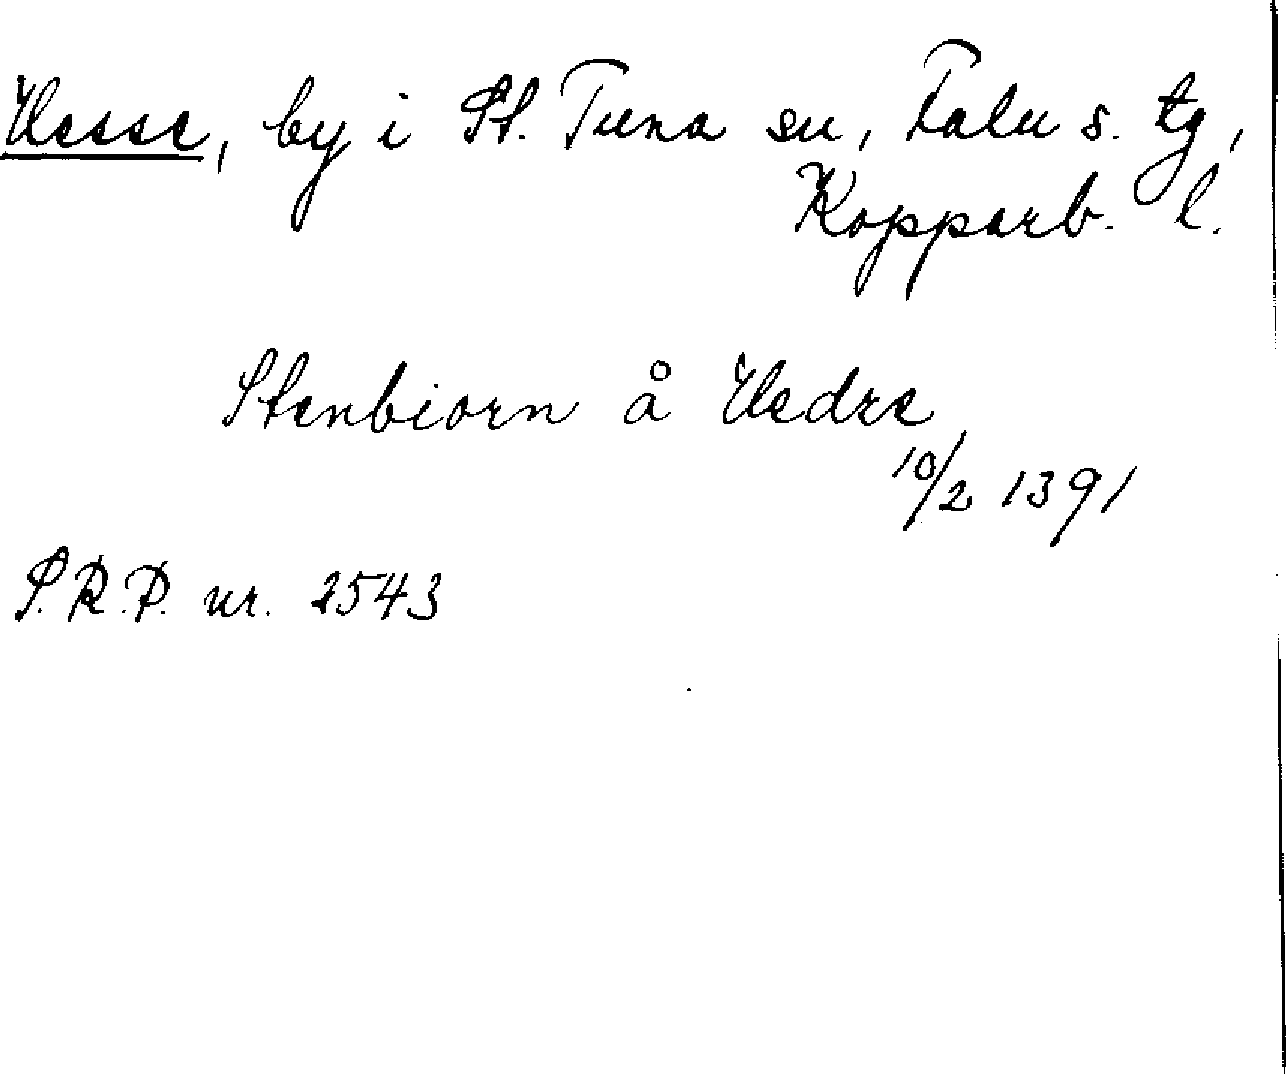 Hesse, by i St. Tuna sn, Falu s. tg,
Kopparb. l.
Stenbiorn å Hedre
10/2 1391
S.R.P. nr. 2543